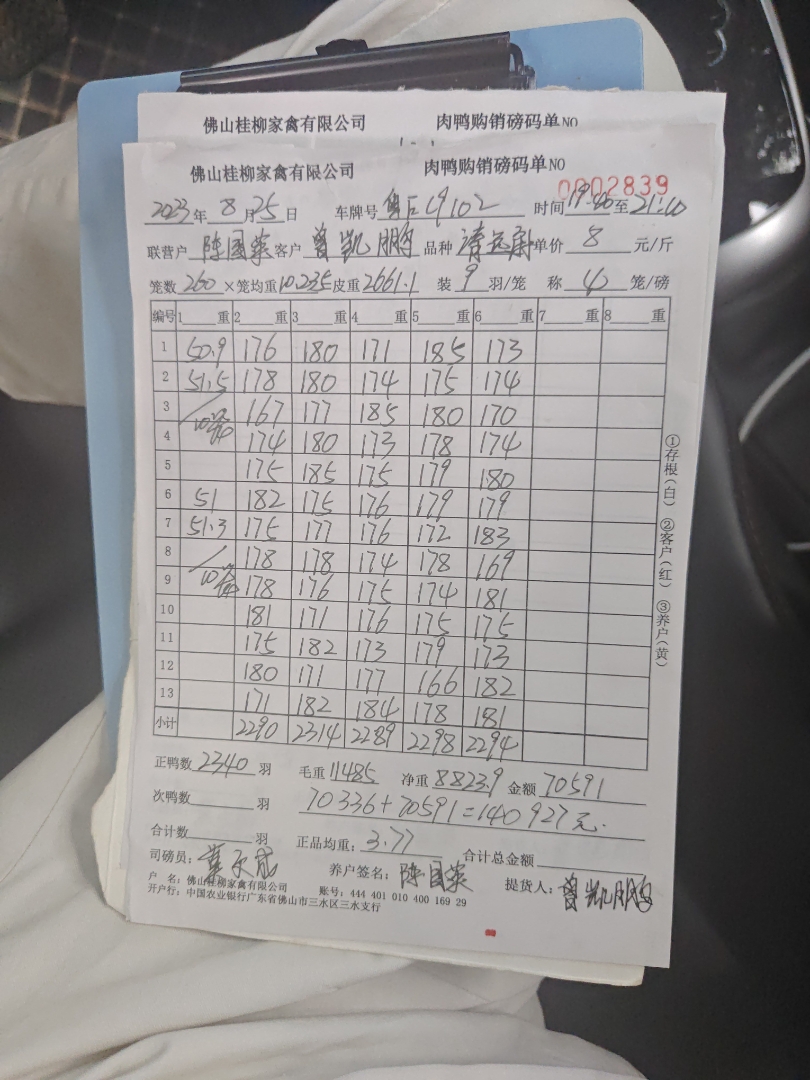 佛山桂柳家禽有限公司 肉鸭购销磅码单NO
佛山桂柳家禽有限公司 肉鸭购销磅码单NO
0002839
2023年8月25日 车牌号 时间19:40至21:10
联营户 陈国 客户 曾凯鹏 品种 清远 单价 8 元/斤
笼数 260 ×笼均重10.235皮重2661.1 装 9 羽/笼 称 4 笼/磅
编号 1 重 2 重 3 重 4 重 5 重 6 重 7 重 8 重
1 50.9 176 180 171 185 173
2 51.5 178 180 174 175 174
3 167 177 185 180 170
4 174 180 173 178 174
5 175 185 175 179 180
6 51 182 175 176 179 179
7 51.3 175 177 176 172 183
8 178 178 174 178 169
9 178 176 175 174 181
10 181 171 176 175 175
11 175 182 173 179 173
12 180 171 177 166 182
13 171 182 184 178 181
小计 2290 2314 2289 2298 2294
①存根(白) ②客户(红) ③养户(黄)
正鸭数 2340 羽 毛重 11485 净重 8823.9 金额 70591
次鸭数 羽 70336+70591=140927元.
合计数 羽 正品均重: 3.77 合计总金额
司磅员: 养户签名: 陈国 提货人: 曾凯鹏
户 名: 佛山桂柳家禽有限公司 账号: 444 401 010 400 169 29
开户行: 中国农业银行广东省佛山市三水区三水支行